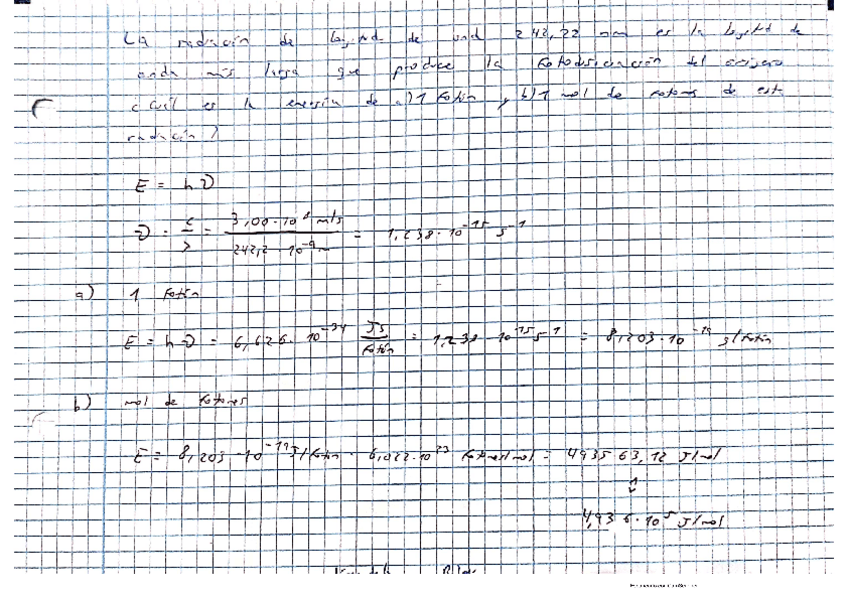 La radiación de longitud de onda 242,22 nm es la longitud de
onda más larga que produce la fotodisociación del oxígeno
¿cuál es la energía de a) 1 fotón y b) 1 mol de fotones de esta
radiación?
E = hν
ν = c/λ = 3,00·10^8 m/s / 242,2·10^-9 m = 1,238·10^-15 s^-1
a) 1 Fotón
E = hν = 6,626·10^-34 Js/fotón = 1,238·10^15 s^-1 = 8,203·10^-19 J/fotón
b) mol de fotones
E = 8,203·10^-19 J/fotón · 6,022·10^23 fotones/mol = 4935 63,12 J/mol
4,936·10^5 J/mol